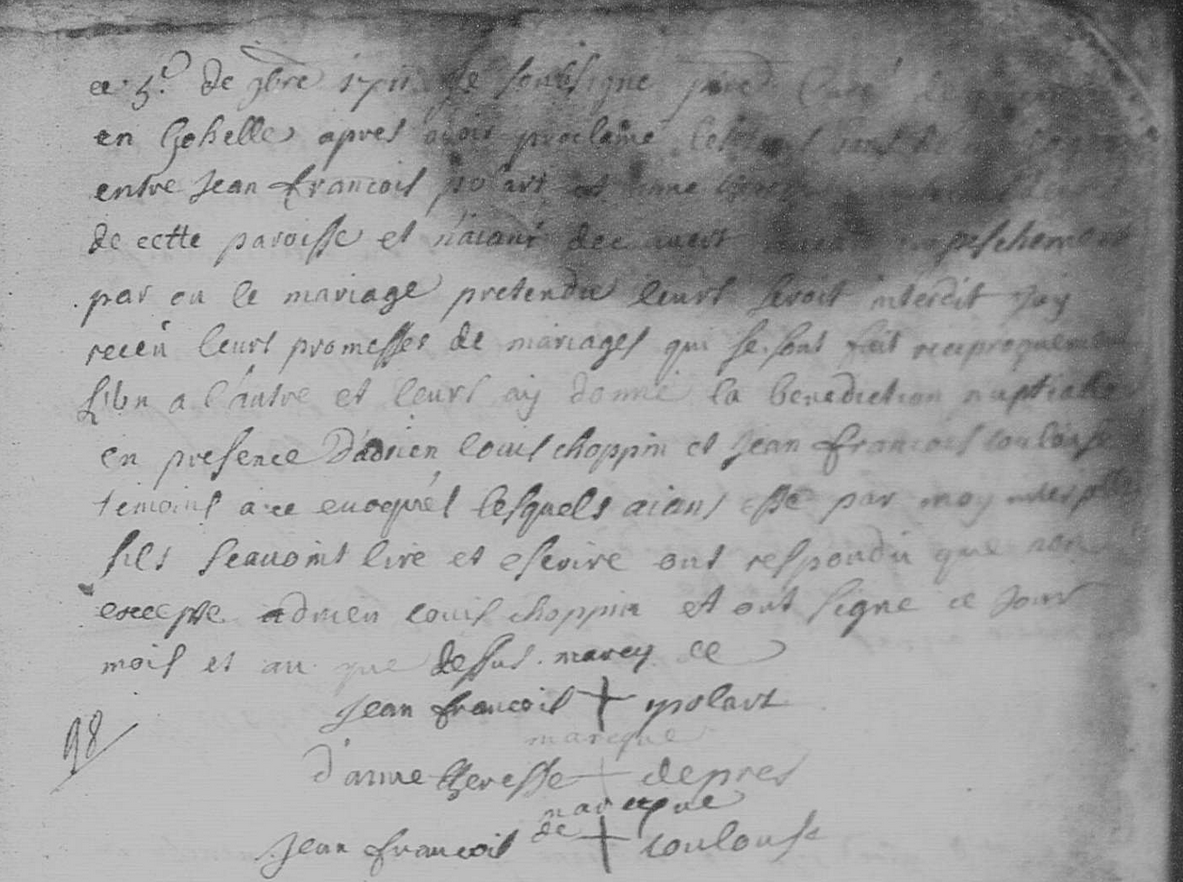 ce 5.e de 9bre 1711 Je soubsigne curé
en Gohelle apres avoir proclamé
entre Jean francois polart et anne
de cette paroisse et n'aiant decouvert empeschement
par ou le mariage pretendu leurs seroit interdit J'ay
receu leurs promesses de mariages qui se sont fait reciproquement
L'un a l'autre et leurs aij donné la benediction nuptialle
en presence D'adrien louis choppin et Jean francois toulouse
temoins a ce evoqués lesquels aians esté par moy
sils scavoint lire et escrire ont respondu que non
excepte adrien louis choppin et ont signe ce Jour
mois et an que dessus . marcq de
Jean francois + polart
marcque
d'anne theresse + depres
marcque
Jean francois de + toulouse
98